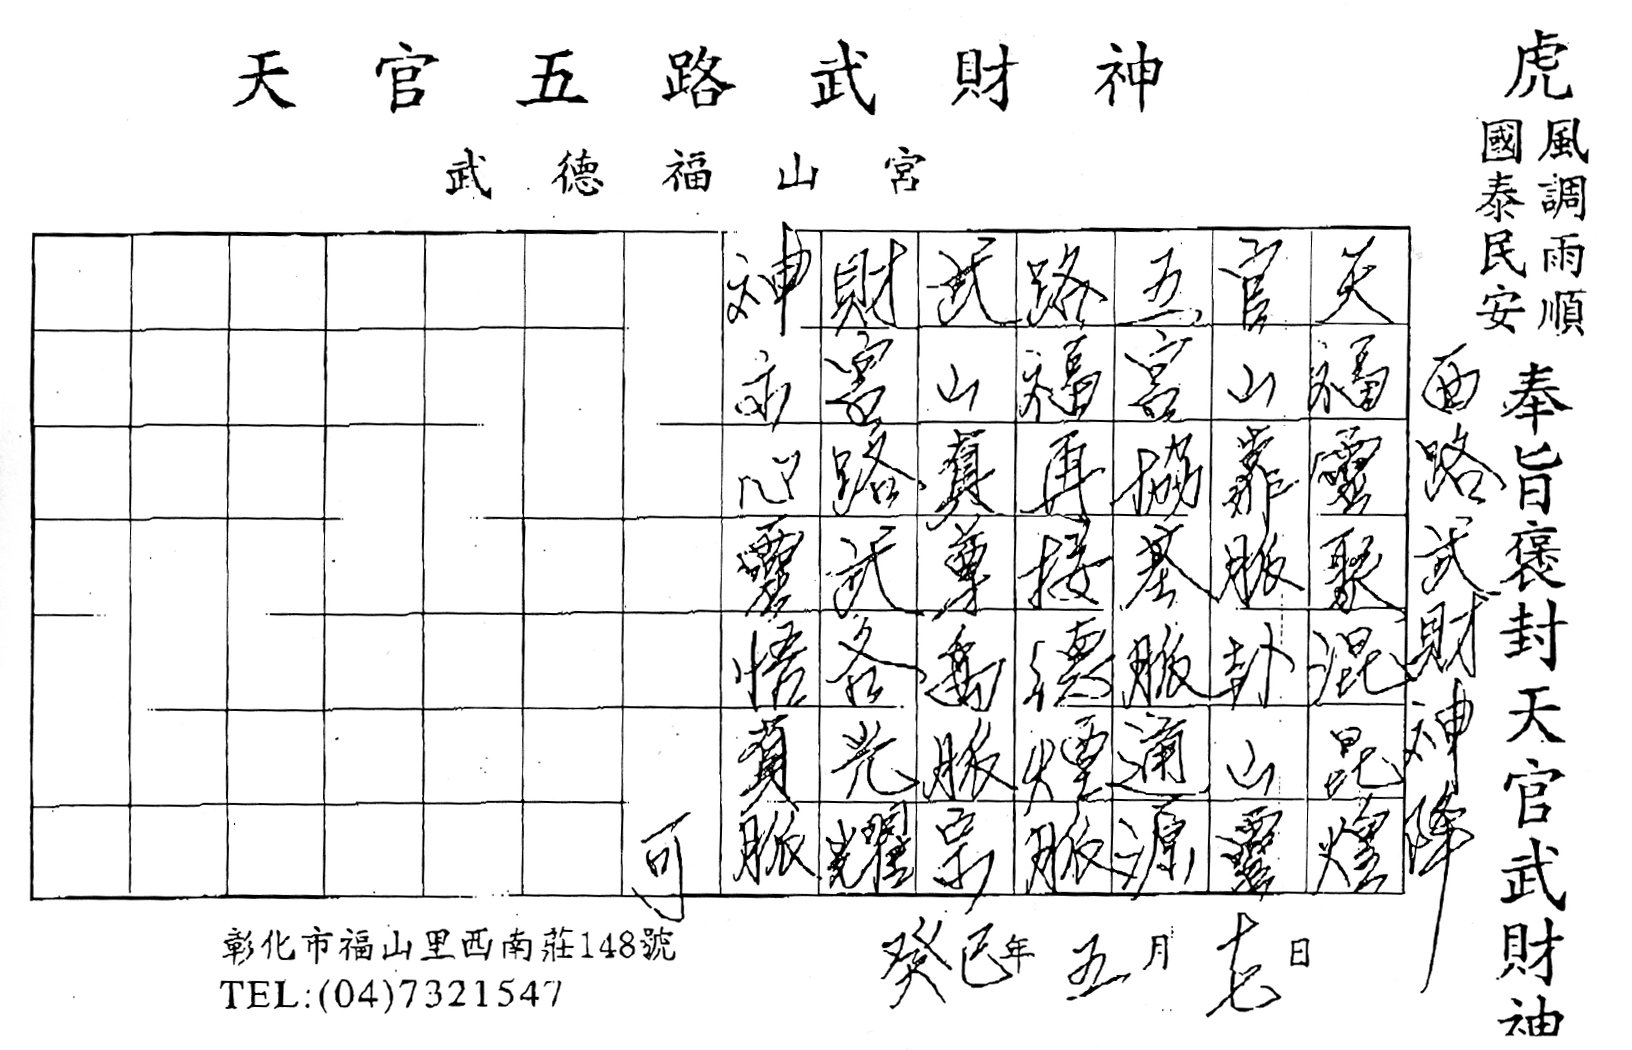 天官五路武財神
武德福山宮
虎
風調雨順
國泰民安
奉旨褒封天官武財神
西路武財神降
天福靈聚混昆煌
官山靠脈封山靈
五宮協基脈通源
路福再接德煙脈
武山真尊脈宗
財宮路武各光耀
神心靈悟貫脈
可
癸巳年五月十七日
彰化市福山里西南莊148號
TEL:(04)7321547